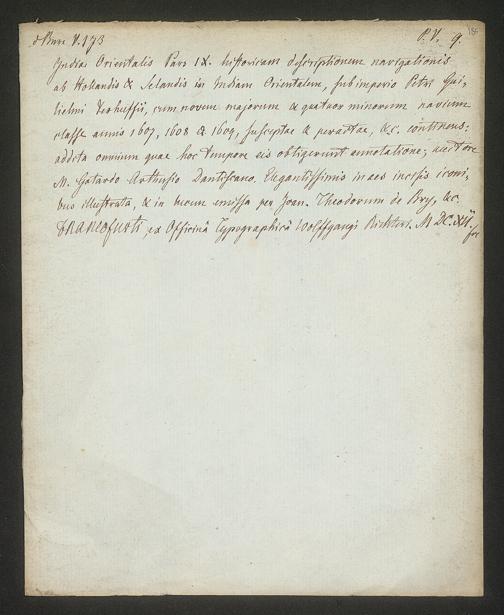 d Bure V. 173 P. V. 9.
Indiae Orientalis Pars IX. historicam descriptionem navigationis
ab Hollandis & Selandis in Indiam Orientalem, sub imperio Petri Gui-
lielmi Verhuffii, cum novem majorum & quatuor minorum navium
classe annis 1607, 1608 & 1609, susceptae & peractae, &c. continens:
addita omnium quae hoc tempore eis obtigerunt annotatione; auctore
M. Gotardo Arthusio Dantiscano. Elegantissimis in aes incisis iconi-
bus illustrata, & in lucem emissa per Joan. Theodorum de Bry, &c.
FRANCOFURTI, ex Officinâ Typographicâ Wolffgangi Richteri. M DC. XII.
fo